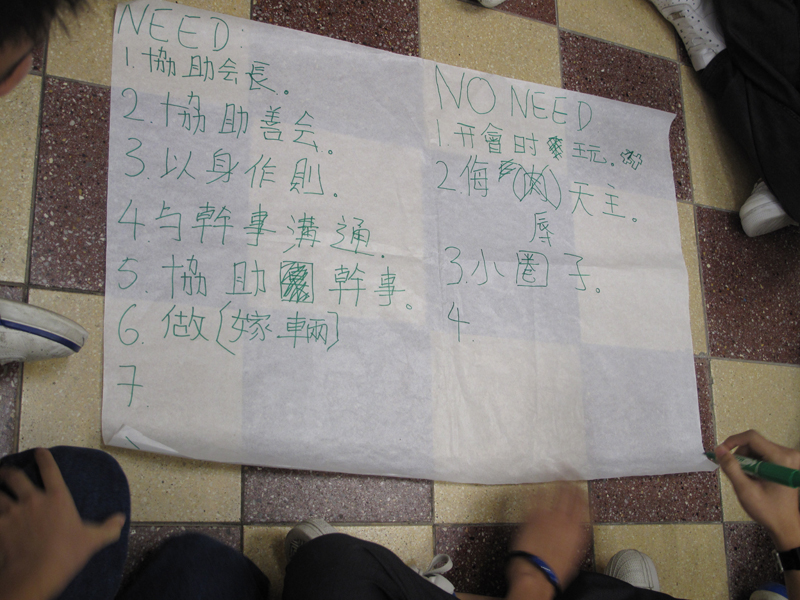 NEED
1. 協助会長。
2. 協助善会。
3. 以身作則。
4 与幹事溝通.
5. 協助幹事。
6. 做(嫁輛)
7
NO NEED
1. 开會时玩。
2. 侮辱天主。
3. 小圈子。
4.